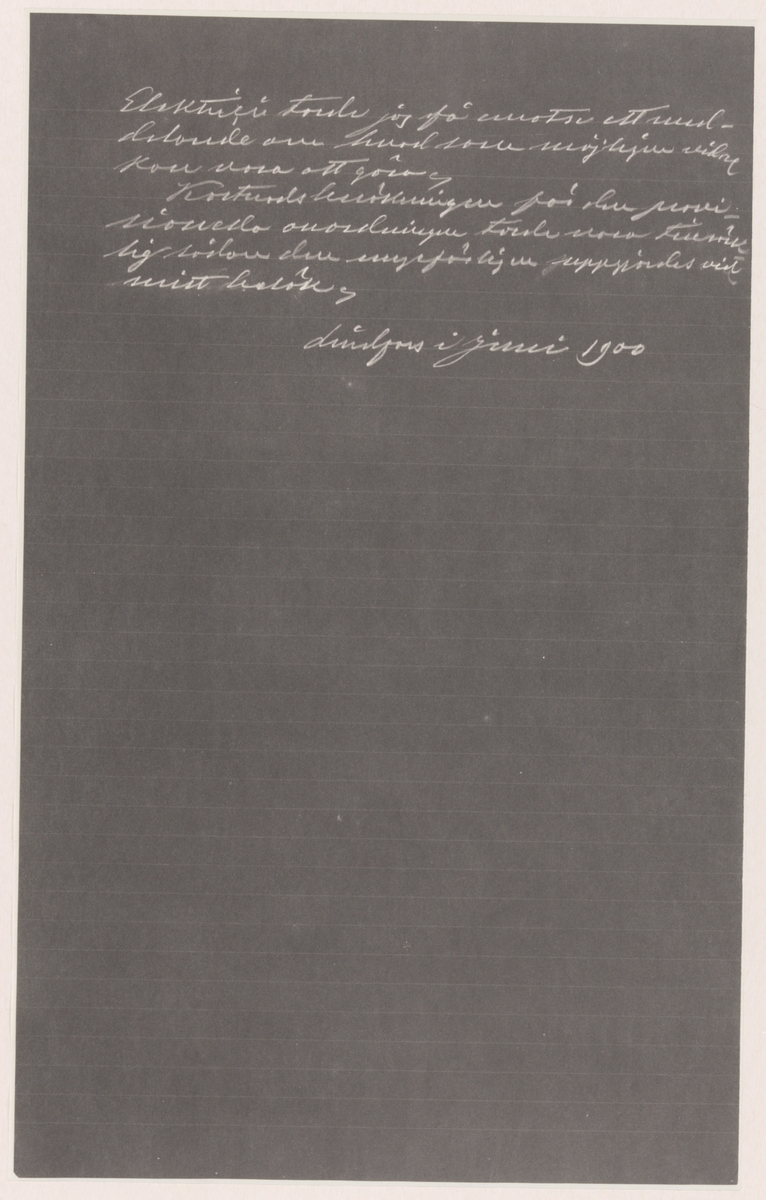 torde jag få emotse ett med-
delande om hvad som möjligen vidare
kan vara att göra,
Kostnadsberäkningen för den provi-
sionella anordningen torde vara tillräck-
lig sådan den ungefärligen uppgjordes vid
mitt besök,
Lindfors i Juni 1900